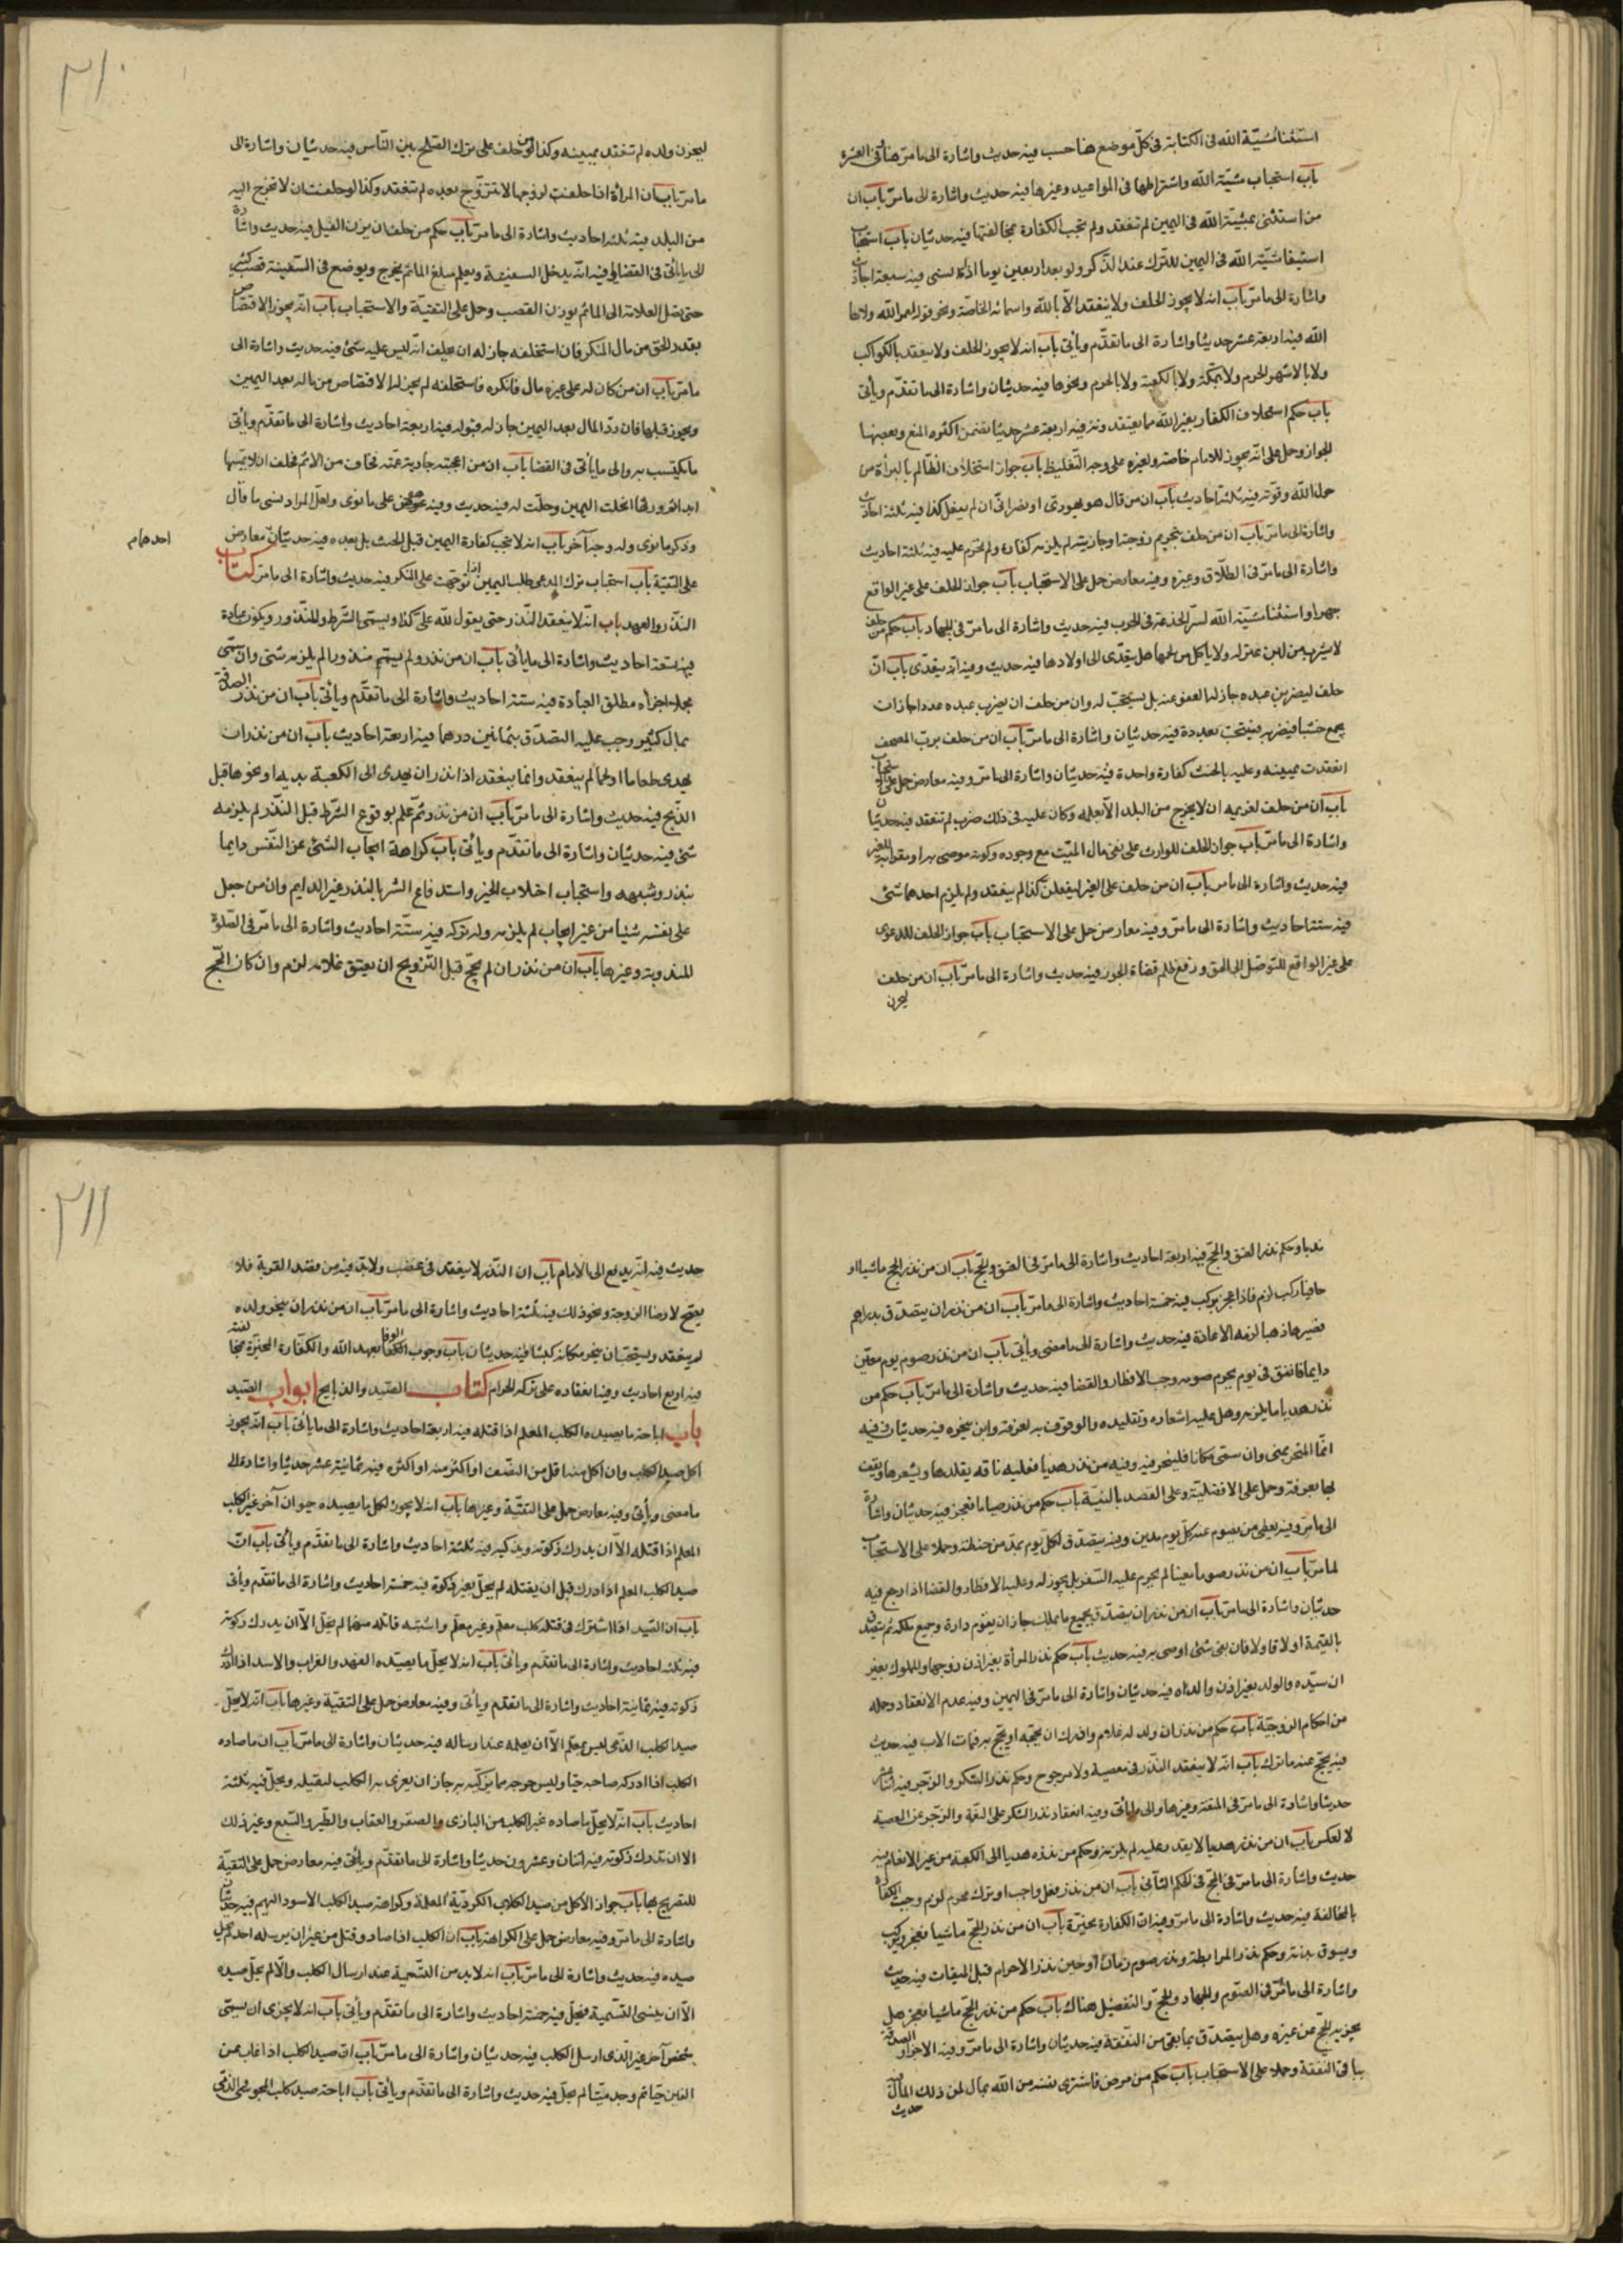 استثنا مشيّة الله فى الكتابة فى كلّ موضع هنا حسب فيه حديث واشارة الى ما مرّ هنا وفى العشرة
باب استحباب مشيّة الله واشتراطها فى المواعيد وغيرها فيه حديث واشارة الى ما مرّ باب ان
من استثنى بمشيّة الله فى اليمين لم تنعقد ولم تجب الكفارة بمخالفتها فيه حديثان باب استحباب
استثنا مشيّة الله فى اليمين للتبرك عند الذكر ولو بعد اربعين يوما اذا نسى فيه سبعة احاديث
واشارة الى ما مرّ باب انه لا يجوز الحلف ولا ينعقد الّا بالله واسمائه الخاصّة ونحو قوله لعمر الله ولاها
الله فيه اربعة عشر حديثا واشارة الى ما تقدّم ويأتى باب انه لا يجوز الحلف ولا ينعقد بالكواكب
ولا بالاشهر الحرم ولا بمكّة ولا بالكعبة ولا بالحرم ونحوها فيه حديثان واشارة الى ما تقدّم ويأتى
باب حكم استحلاف الكفار بغير الله مما يعتقدونه فيه اربعة عشر حديثا تضمن اكثره المنع وبعضها
الجواز وحمل على انّه يجوز للامام خاصة ولغيره على وجه التّغليظ باب جواز استحلاف الظّالم بالبرأة من
حول الله وقوّته فيه ثلثة احاديث باب ان من قال هو يهودى او نصرانى ان لم يفعل كذا فيه ثلثة احاديث
واشارة الى ما مرّ باب ان من حلف بتحريم زوجته او جاريته لم يلزمه كفارة ولم تحرم عليه فيه ثلثة احاديث
واشارة الى ما مرّ فى الطلاق وغيره وفيه معارض حمل على الاستحباب باب جواز الحلف على غير الواقع
جهرا واستثنا مشيّة الله لسرّ الخدعة فى الحرب فيه حديث واشارة الى ما مرّ فى الجهاد باب حكم من حلف
لا يشرب من لبن عنز له ولا ياكل من لحمها هل يتعدّى الى اولادها فيه حديث وفيه انه يتعدّى باب انّ من
حلف ليضربن عبده جاز له العفو عنه بل يستحبّ له وان من حلف ان يضرب عبده عددا جاز ان
يجمع خشبا فيضربه فيحسب بعدده فيه حديثان واشارة الى ما مرّ باب ان من حلف بربّ المصحف
انعقدت يمينه وعليه بالحنث كفارة واحدة فيه حديثان واشارة الى ما مرّ وفيه معارض حمل على الاستحباب
باب ان من حلف لغريمه ان لا يخرج من البلد الّا بعلمه وكان عليه فى ذلك ضرر لم تنعقد فيه حديثان
واشارة الى ما مرّ باب جواز الحلف للوارث على نفى مال الميّت مع وجوده وكونه موصى به او مقرا به للغير
فيه حديث واشارة الى ما مر باب ان من حلف على الغير ليفعلنّ كذا لم ينعقد ولم يلزم احدهما شئ
فيه ستة احاديث واشارة الى ما مرّ وفيه معارض حمل على الاستحباب باب جواز الحلف للمدعى
على غير الواقع للتوصّل الى الحق ورفع ظلم قضاة الجور فيه حديث واشارة الى ما مرّ باب ان من حلف
لينحرن
٢١٠
لينحرن ولده لم تنعقد يمينه وكذا من حلف على ترك الصّلح بين النّاس فيه حديثان واشارة الى
ما مرّ باب ان المرأة اذا حلفت لزوجها لا تتزوّج بعده لم تنعقد وكذا لو حلفت ان لا تخرج اليه
من البلد فيه ثلثة احاديث واشارة الى ما مرّ باب حكم من حلف ان يزن الفيل فيه حديث واشارة
الى ما يأتى فى القضا وفيه انّه يدخل السفينة ويعلم مبلغ الما ثم يخرج ويوضع فى السّفينة قصب كثير
حتى تصل العلامة الى الما ثم يوزن القصب وحمل على التقيّة والاستحباب باب انّه يجوز الاقتصاص
بقدر الحق من مال المنكر فان استحلفه جاز له ان يحلف انّه ليس عليه شئ فيه حديث واشارة الى
ما مرّ باب ان من كان له على غيره مال فانكره فاستحلفه لم يجز له الاقتصاص من ماله بعد اليمين
ويجوز قبلها فان ردّ المال بعد اليمين جاز له قبوله فيه اربعة احاديث واشارة الى ما تقدّم ويأتى
ما يكتسب به والى ما يأتى فى القضا باب ان من اعجبته جارية عمّته فخاف من الاثم فحلف ان لا يمسّها
ابدا فورثها انحلت اليمين وحلّت له فيه حديث وفيه على ما نوى ولعلّ المراد نسى ما قال
وذكر ما نوى وله وجه آخر باب انه لا تجب كفارة اليمين قبل الحنث بل بعده فيه حديثان معارض
احدهما م
على التقيّة باب استحباب ترك المدعى طلب اليمين اذا توجّهت على المنكر فيه حديث واشارة الى ما مرّ كتاب
النذر والعهد باب انّه لا ينعقد النّذر حتى يقول لله علىّ كذا ويسمّى الشّرط والمنذور ويكون عبادة
فيه تسعة احاديث واشارة الى ما يأتى باب ان من نذر ولم يسمّ منذورا لم يلزمه شئ وان سمّى
مجملا اجزأه مطلق العبادة فيه ستة احاديث واشارة الى ما تقدّم ويأتى باب ان من نذر الصدقة
بمال كثير وجب عليه التصدّق بثمانين درهما فيه اربعة احاديث باب ان من نذر ان
يهدى طعاما او لحما لم ينعقد وانما ينعقد اذا نذر ان يهدى الى الكعبة بدنة او نحوها قبل
الذّبح فيه حديث واشارة الى ما مرّ باب ان من نذر ثمّ علم بوقوع الشّرط قبل النّذر لم يلزمه
شئ فيه حديثان واشارة الى ما تقدّم ويأتى باب كراهة ايجاب الشئ على النّفس دايما
بنذر وشبهه واستحباب اجتلاب الخير واستدفاع الشر بالنذر غير الدايم وان من جعل
على نفسه شيئا من غير ايجاب لم يلزمه وله تركه فيه ستّة احاديث واشارة الى ما مرّ فى الصّلوة
المندوبة وغيرها باب ان من نذر ان لم يحجّ قبل التّزويج ان يعتق غلامه لزم وان كان الحجّ
ندبا وحكم نذر العتق والحجّ فيه اربعة احاديث واشارة الى ما مرّ فى العتق والحجّ باب ان من نذر الحج ماشيا او
حافيا لزم فاذا عجز يركب فيه خمسة احاديث واشارة الى ما مرّ باب ان من نذر ان يتصدّق بدراهم
فصيرها ذهبا لزمه الاعادة فيه حديث واشارة الى ما مضى ويأتى باب ان من نذر صوم يوم معيّن
دايما فاتفق فى يوم يحرم صومه وجب الافطار والقضا فيه حديث واشارة الى ما مرّ باب حكم من
نذر هديا ما يلزمه وهل عليه اشعاره وتقليده والوقوف به بعرفة واين ينحره فيه حديثان وفيه
انّما المنحر بمنى وان سمّى مكانا فلينحر فيه وفيه من نذر هديا فعليه ناقه يقلدها ويشعرها ويقف
بها بعرفة وحمل على الافضليّة وعلى القصد بالنيّة باب حكم من نذر صياما فعجز فيه حديثان واشارة
الى ما مرّ وفيه يعطى من يصوم عنه كلّ يوم مدين وفيه يتصدّق لكلّ يوم بمدّ من حنطة وحملا على الاستحباب
لما مرّ باب ان من نذر صوما معينا لم يحرم عليه السّفر بل يجوز له وعليه الافطار والقضا اذا رجع فيه
حديثان واشارة الى ما مرّ باب ان من نذر ان يتصدّق بجميع ما يملك جاز ان يقوم داره وجميع ملكه ثم يتصدّق
بالقيمة اولا فاولا فان بقى شئ اوصى به فيه حديث باب حكم نذر المرأة بغير اذن زوجها والمملوك بغير
اذن سيّده والولد بغير اذن والده فيه حديثان واشارة الى ما مرّ فى اليمين وفيه عدم الانعقاد وجعله
من احكام الزوجيّة باب حكم من نذر ان ولد له غلام وادرك ان يحجّه او يحجّ به فمات الاب فيه حديث
فيه يحجّ عنه مما ترك باب انّه لا ينعقد النّذر فى معصية ولا مرجوح وحكم نذر الشكر والزجر فيه اثنا عشر
حديثا واشارة الى ما مرّ فى المتعة وغيرها والى ما يأتى وفيه انعقاد نذر الشكر على النّعمة والزجر عن المعصية
لا العكس باب ان من نذر هديا لا يقدر عليه لم يلزمه وحكم من نذر هديا الى الكعبة من غير الانعام فيه
حديث واشارة الى ما مرّ فى الحجّ فى الحكم الثّانى باب ان من نذر فعل واجب او ترك محرم لزم وجبت الكفارة
بالمخالفة فيه حديث واشارة الى ما مرّ وفيه ان الكفارة مخيّرة باب ان من نذر الحجّ ماشيا فعجز ركب
ويسوق بدنة وحكم نذر المرابطة ونذر صوم زمان او حين نذر الاحرام قبل الميقات فيه حديث
واشارة الى ما مرّ فى الصّوم والجهاد والحجّ والتفصيل هناك باب حكم من نذر الحجّ ماشيا فعجز هل
يجزيه الحج عن غيره وهل يتصدّق بما بقى من النّفقة فيه حديثان واشارة الى ما مرّ وفيه الاجزاء والصدقة
بباقى النفقة وحملا على الاستحباب باب حكم من مرض فاشترى نفسه من الله بمال لمن ذلك المال فيه
حديث
٢١١
حديث فيه انّه يدفع الى الامام باب ان النّذر لا ينعقد فى غضب ولا بدّ فيه من قصد القربة فلا
يصح لارضا الزوجة ونحو ذلك فيه ثلثة احاديث واشارة الى ما مرّ باب ان من نذر ان ينحر ولده
لم ينعقد ويستحبّ ان ينحر مكانه كبشا فيه حديثان باب وجوب الوفا بعهد الله والكفّارة المخيّرة بمخالفته
فيه اربع احاديث وفيه انعقاده على ترك الحرام كتاب الصّيد والذبايح ابواب الصّيد
باب اباحة ما يصيده الكلب المعلم اذا قتله فيه اربعة احاديث واشارة الى ما يأتى باب انّه يجوز
اكل صيد الكلب وان اكل منه اقل من النصّف او اكثر منه او اكثره فيه ثمانية عشر حديثا واشارة الى
ما مضى ويأتى وفيه معارض حمل على التقيّة وغيرها باب انه لا يجوز اكل ما يصيده حيوان آخر غير الكلب
المعلم اذا قتله الّا ان يدرك ذكوته ويذكيه فيه ثلثة احاديث واشارة الى ما تقدّم ويأتى باب انّ
صيد الكلب المعلم اذا ادرك قبل ان يقتله لم يحلّ بغير ذكوة فيه خمسة احاديث واشارة الى ما تقدّم ويأتى
باب ان الصّيد اذا اشترك فى قتله كلب معلّم وغير معلّم واشتبه قاتله منهما لم يحلّ الّا ان يدرك ذكوته
فيه ثلثة احاديث واشارة الى ما تقدّم ويأتى باب انه لا يحلّ ما يصيده الفهد والغراب والاسد الا اذا ادرك
ذكوته فيه ثمانية احاديث واشارة الى ما تقدّم ويأتى وفيه معارض حمل على التقيّة وغيرها باب انّه لا يحلّ
صيد الكلب الذى ليس بمعلم الّا ان يعلمه عند ارساله فيه حديثان واشارة الى ما مرّ باب ان ما صاده
الكلب اذا ادركه صاحبه حيّا وليس معه ما يذكّيه به جاز ان يغرى به الكلب ليقتله ويحلّ فيه ثلثة
احاديث باب انّه لا يحلّ ما صاده غير الكلب من البازى والصقر والعقاب والطّير والسّبع وغير ذلك
الا ان تدرك ذكوته فيه اثنان وعشرون حديثا واشارة الى ما تقدّم ويأتى فيه معارض حمل على التقيّة
للتصريح بها باب جواز الاكل من صيد الكلاب الكرديّة المعلمة وكراهة صيد الكلب الاسود البهيم فيه حديثان
واشارة الى ما مرّ وفيه معارض حمل على الكراهة باب ان الكلب اذا صاد وقتل من غير ان يرسله احد لم يحل
صيده فيه حديث واشارة الى ما مرّ باب انه لا بد من التّسمية عند ارسال الكلب والّا لم يحلّ صيده
الّا ان ينسى التّسمية فيحلّ فيه خمسة احاديث واشارة الى ما تقدّم ويأتى باب انه لا يجزى ان يسمّى
شخص آخر غير الّذى ارسل الكلب فيه حديثان واشارة الى ما مرّ باب انّ صيد الكلب اذا غاب عن
العين حيّا ثم وجد ميّتا لم يحلّ فيه حديث واشارة الى ما تقدّم ويأتى باب اباحة صيد كلب المجوسى والذّمّى